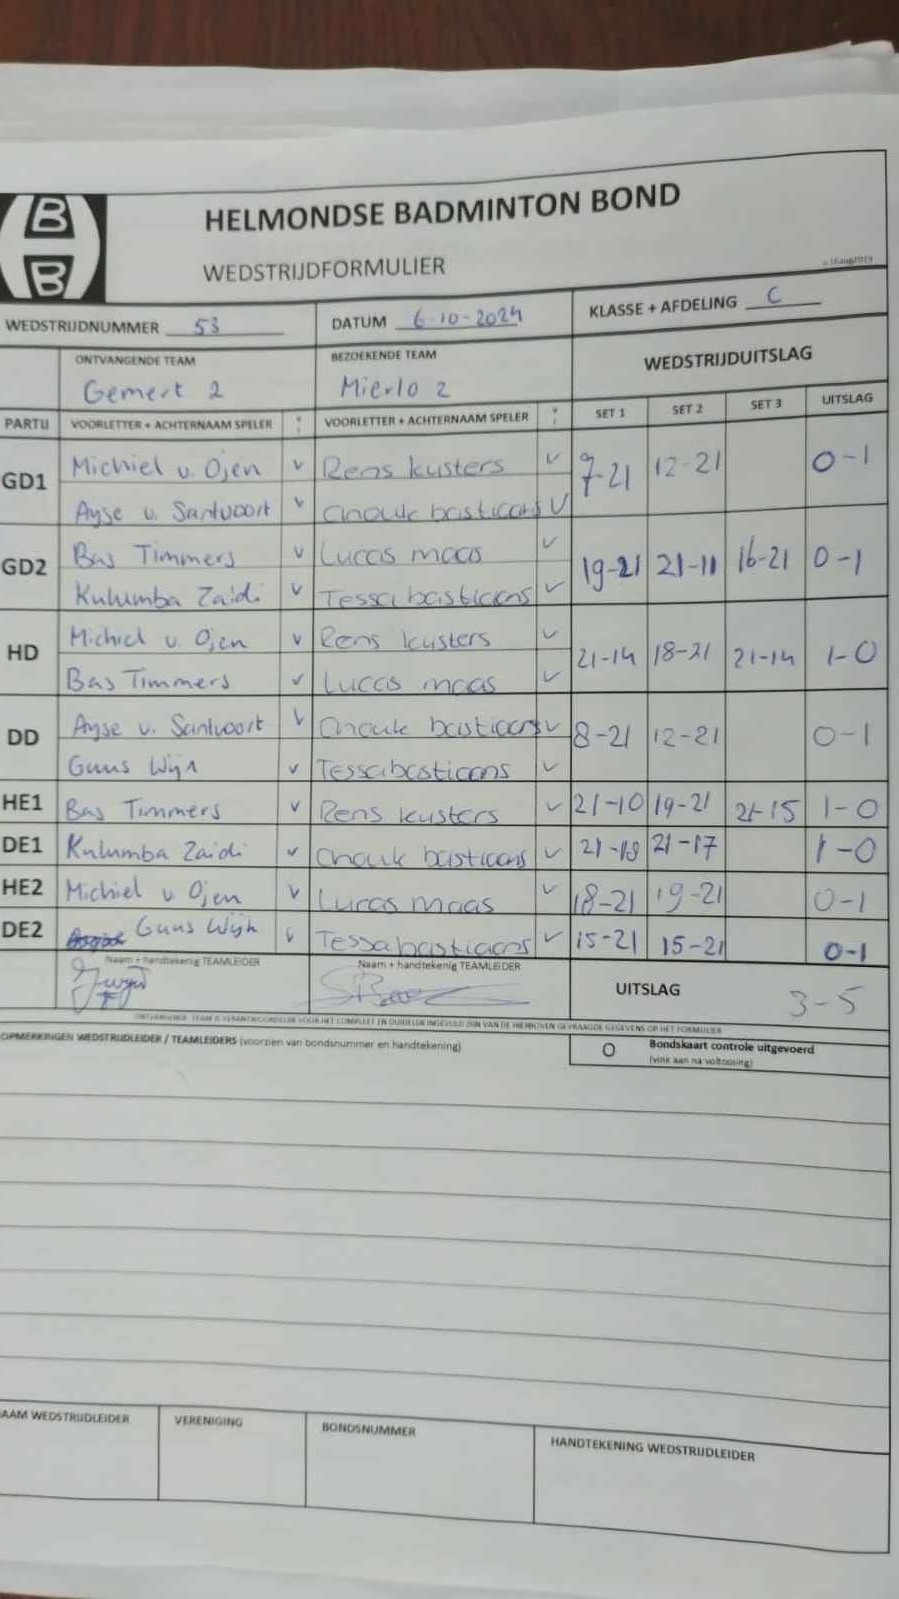 B
B
HELMONDSE BADMINTON BOND
WEDSTRIJDFORMULIER
WEDSTRIJDNUMMER 53 DATUM 6-10-2024 KLASSE + AFDELING C
ONTVANGENDE TEAM BEZOEKENDE TEAM WEDSTRIJDUITSLAG
Gemert 2 Mierlo 2
PARTIJ VOORLETTER + ACHTERNAAM SPELER VOORLETTER + ACHTERNAAM SPELER SET 1 SET 2 SET 3 UITSLAG
GD1 Michiel v. Ojen v Rens kusters v 7-21 12-21 0-1
Ayse v. Santvoort v Anouk bastiaans v
GD2 Bas Timmers v Lucas maas v 19-21 21-11 16-21 0-1
Kulumba Zaidi v Tessa bastiaans v
HD Michiel v. Ojen v Rens kusters v 21-14 18-21 21-14 1-0
Bas Timmers v Lucas maas v
DD Ayse v. Santvoort v Anouk bastiaans v 8-21 12-21 0-1
Guus Wijn v Tessa bastiaans v
HE1 Bas Timmers v Rens kusters v 21-10 19-21 21-15 1-0
DE1 Kulumba Zaidi v Anouk bastiaans v 21-18 21-17 1-0
HE2 Michiel v Ojen v Lucas maas v 18-21 19-21 0-1
DE2 Guus Wijn v Tessa bastiaans v 15-21 15-21 0-1
Naam + handtekenig TEAMLEIDER Naam + handtekenig TEAMLEIDER
UITSLAG 3-5
ONTVANGENDE TEAM IS VERANTWOORDELIJK VOOR HET COMPLEET EN DUIDELIJK INGEVULD ZIJN VAN DE HIERBOVEN GEVRAAGDE GEGEVENS OP HET FORMULIER
OPMERKINGEN WEDSTRIJDLEIDER / TEAMLEIDERS (voorzien van bondsnummer en handtekening) O Bondskaart controle uitgevoerd
(vink aan na voltooiing)
AAM WEDSTRIJDLEIDER VERENIGING BONDSNUMMER HANDTEKENING WEDSTRIJDLEIDER